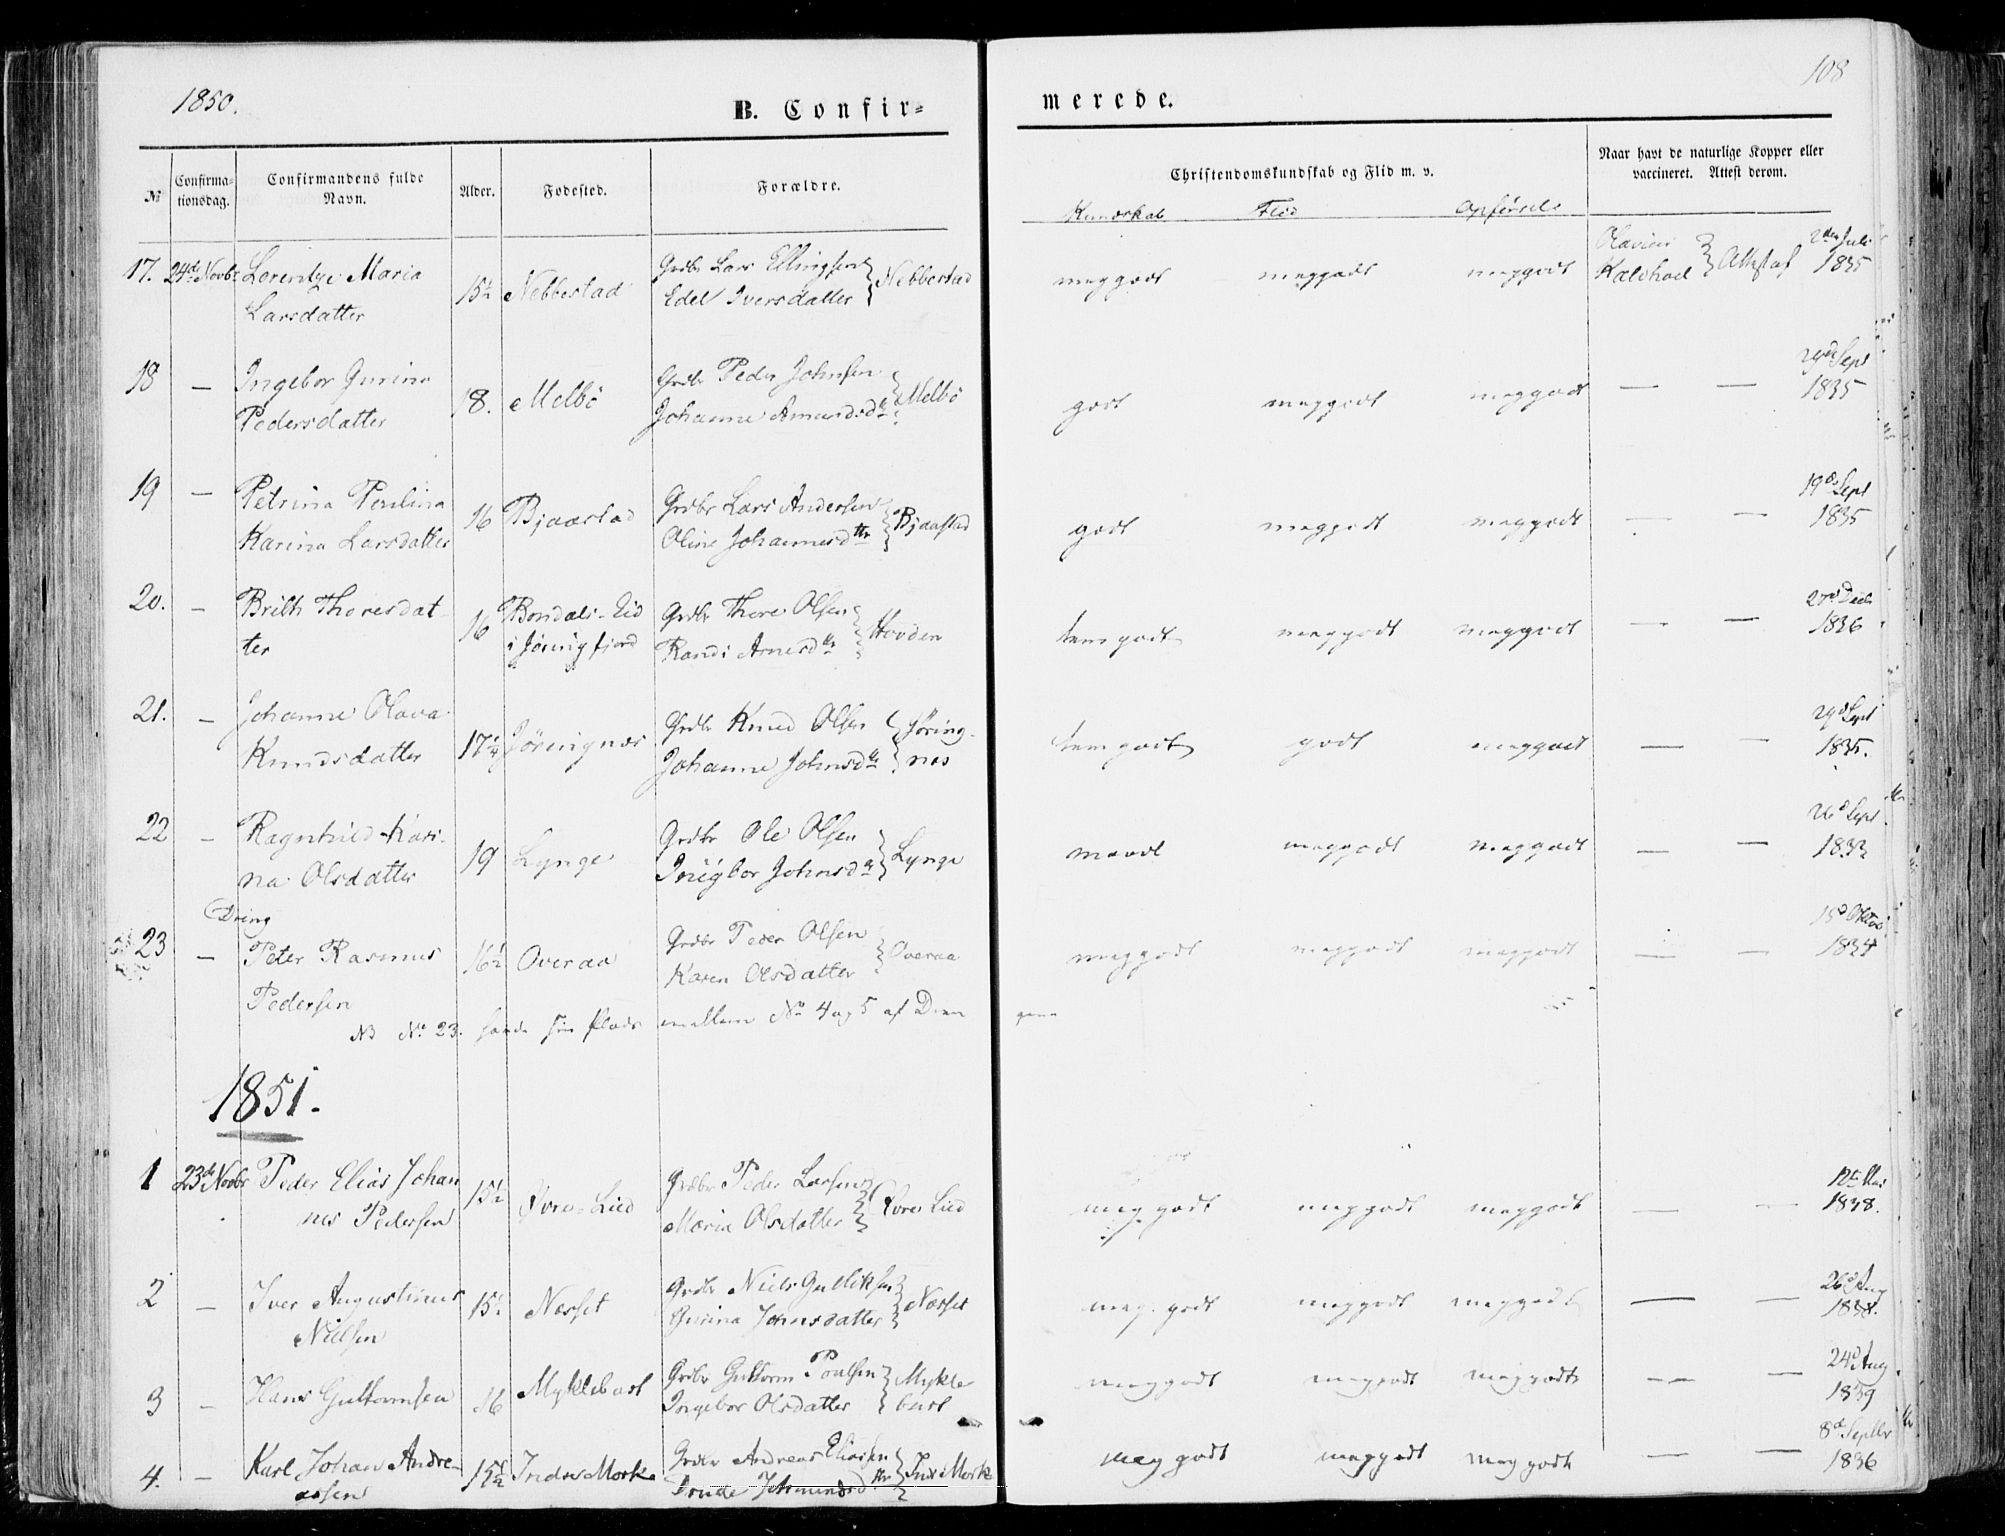 1850.
108
B. Confir=
merede.
№
Confirma-
tionsdag.
Confirmandens fulde
Navn.
Alder.
Fødested.
Forældre.
Christendomskundskab og Flid m. v.
Kundskab Flid Opførsel
Naar havt de naturlige Kopper eller
vaccineret. Attest derom.
17. 24de Novbr Lorentze Maria
Larsdatter
15½ Nebbestad
Grdbr Lars Ellingsen
Edel Iversdatter } Nebbestad
meggodt meggodt meggodt
Kaldhol } Attest af 2den Juli
1835
18 — Ingebor Gurine
Pedersdatter
18. Melbö
Grdbr Peder Johnsen
Johanne Amundsdtr } Melbö
godt meggodt meggodt — — 29d Sept
1835
19 — Petrina Paulina
Karina Larsdatter
16 Bjaastad
Grdbr Lars Andersen
Oline Johannesdttr } Bjaastad
godt meggodt meggodt — — 19d Sept
1835
20. — Brith Thoresdat-
ter
16 Bondals-Eid
i Jøringfjord
Grdbr Thore Olsen
Randi Arnesdtr } Hovden
temgodt meggodt meggodt — — 27d Decb
1836
21. — Johanne Olava
Knudsdatter
17¼ Jøringnæs
Grdbr Knud Olsen
Johanne Johnsdtr } Jøring-
næs
temgodt godt meggodt — — 29d Sept
1835.
22 — Ragnhild Kari-
na Olsdatter
19 Lynge
Grdbr Ole Olsen
Ingbor Johnsdtr } Lynge
maadl meggodt meggodt — — 26d Sept
1832
Dreng
23 — Peter Rasmus
Pedersen
16½ Overaa
Grdbr Peder Olsen
Karen Olsdatter } Overaa
meggodt meggodt meggodt — — 15d Oktob
1834
NB No 23. havde sin Plads mellem No 4 og 5 af Dren gene
1851.
1 23de Novbr Peder Elias Johan
nes Pedersen
15½ Øvre-Lied
Grdbr Peder Larsen
Maria Olsdatter } Øvre Lied
meg godt meggodt meggodt — — 12te Mai
1838.
2 — Iver Augustinus
Nielsen
15½ Nesset
Grdbr Niels Gulliksen
Gurina Johnsdatter } Nesset
meg. godt meggodt meggodt — — 26d Aug
1838.
3 — Hans Guttormsen
16 Myklebust
Grdbr Guttorm Poulsen
Ingebor Olsdatter } Mykle
bust
meggodt meggodt meggodt — — 24d Aug
1839
4. — Karl Johan Andre-
assen
15½ Indre Morke
Grdbr Andreas Eliassen
} Ind: Mork
meg godt meggodt meg godt — — 8de Septbr
1836